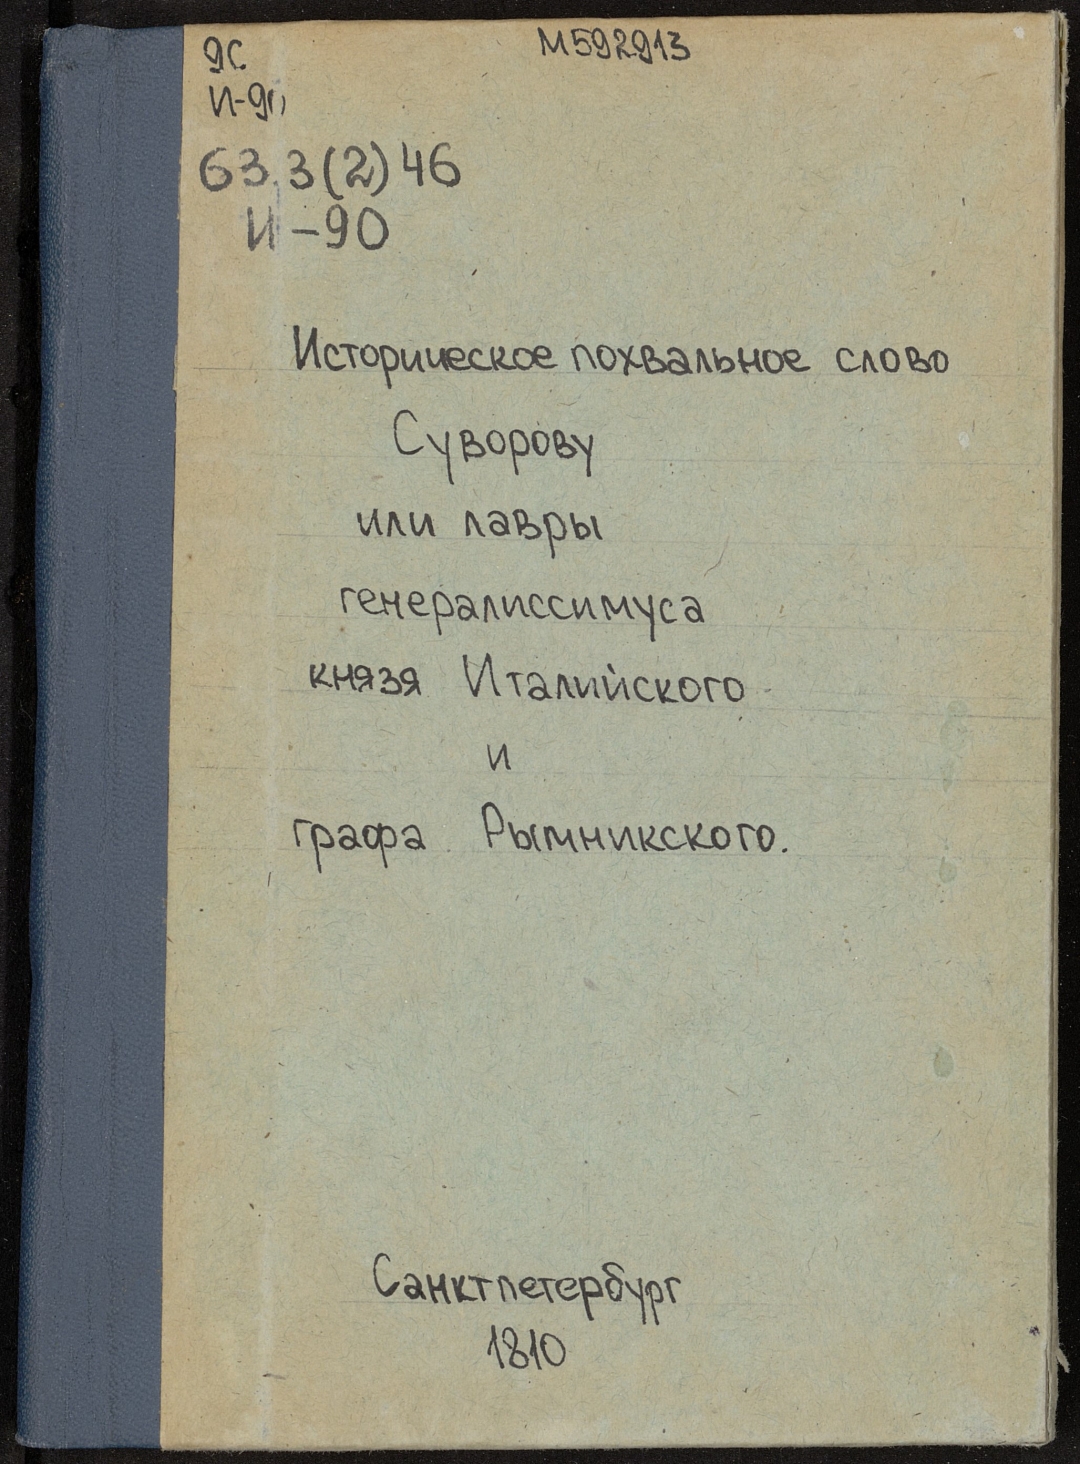 9С
М592913
И-90
63.3(2)46
И-90
Историческое похвальное слово
Суворову
или лавры
генералиссимуса
князя Италийского
и
графа Рымникского.
Санктпетербург
1810